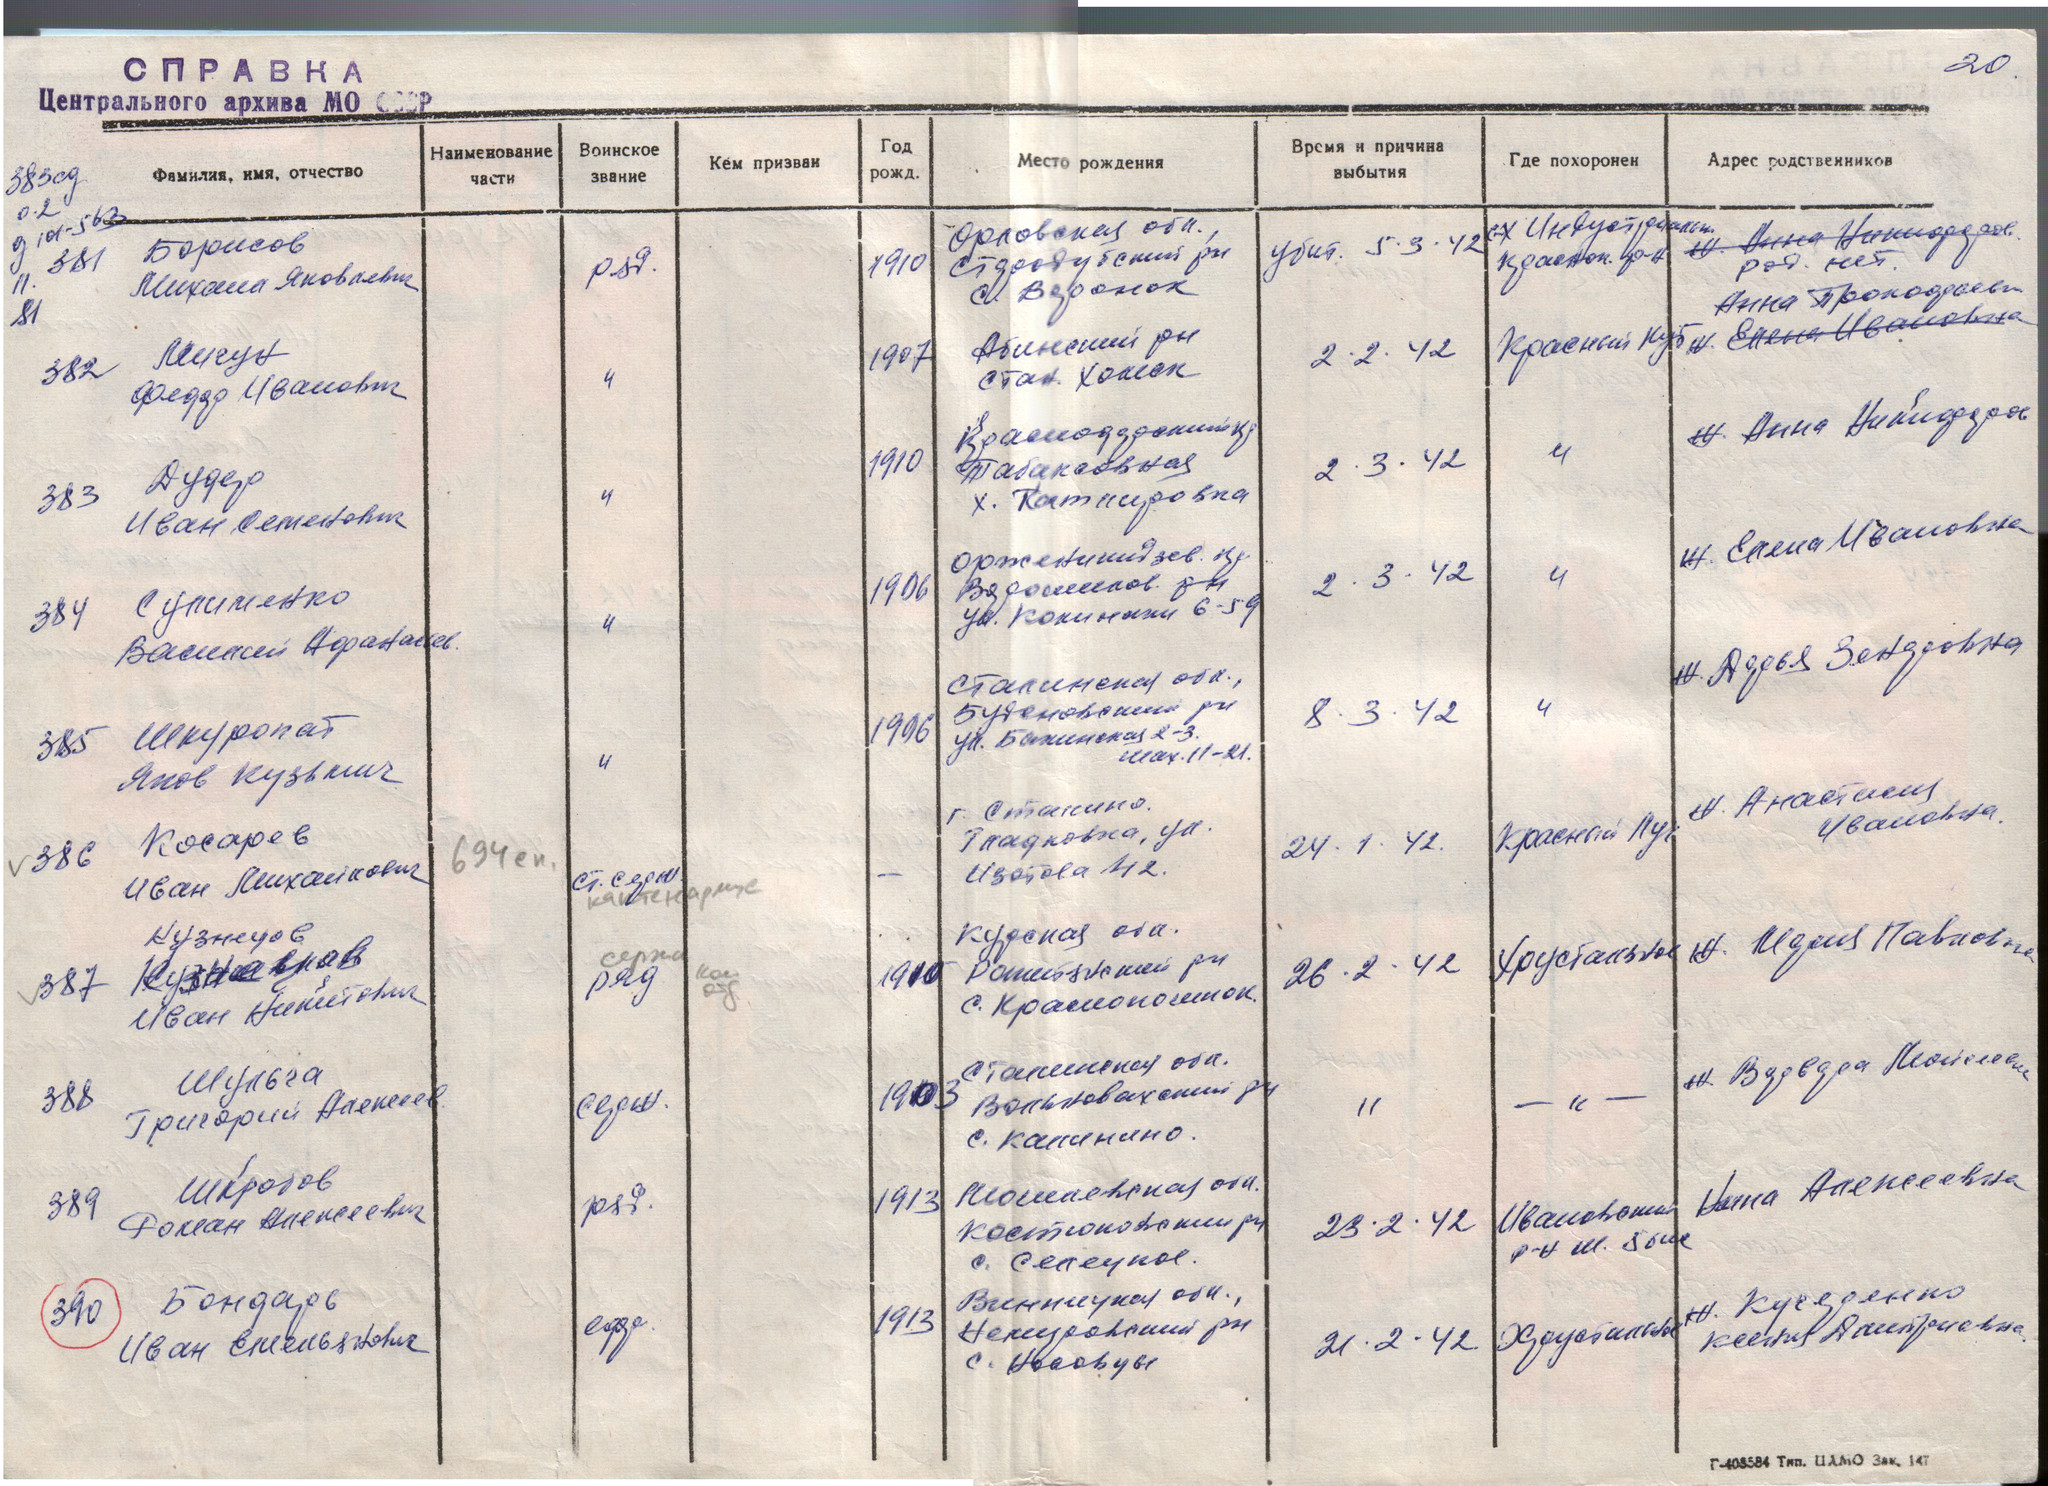 20.
СПРАВКА
Центрального архива МО СССР
Фамилия, имя, отчество
Наименование части
Воинское звание
Кем призван
Год рожд.
Место рождения
Время и причина выбытия
Где похоронен
Адрес родственников
383 сд
о.2
д 101-563
л.
81
381 Борисов
Михаил Яковлевич
ряд.
1910
Орловская обл.,
Стародубский рн
с. Воронок
убит. 5.3.42
с-х Индустриальн.
Краснон. р-н
ж. Анна Никифоров.
род. нет.
382 Мигун
Федор Иванович
"
1907
Абинский рн
стан. Холмск
2.2.42
Красный Куб
Анна Прокофьевн
ж. Елена Ивановна
383 Дудер
Иван Семенович
"
1910
Краснодарский кр
х. Катмировка
2.3.42
"
ж. Анна Никифоров
384 Сулименко
Василий Афанасьев.
"
1906
Орженикидзев. кр.
Ворошилов. рн
2.3.42
"
ж. Елена Ивановна
385 Шкуропат
Яков Кузьмич
"
1906
Сталинская обл.,
Буденовский рн
ул. Бакинская 2-3.
шах. 11-21.
8.3.42
"
ж. Дарья Зендровна
386 Косарев
Иван Михайлович
694 сп.
ст. серж.
каптенармус
—
г. Сталино.
Гладковка, ул.
Изотова 42.
24.1.42.
Красный Луч
ж. Анастасия
Ивановна.
387 Кузнецов
Иван Никитович
сержа
ряд
ком
отд
1915
Курская обл.
Ракитянский рн
с. Краснопочинок.
26.2.42
Хрустальное
ж. Мария Павловна
388 Шульга
Григорий Алексеев.
серж.
1903
Сталинская обл.
Вольновахский рн
с. Калинино.
"
— " —
ж. Варвара Моисеевн
389 Шкробов
Роман Алексеевич
ряд.
1913
Могилевская обл.
Костюковский рн
с. Селецкое.
23.2.42
Ивановский
р-н ш. 5 бис
Нина Алексеевна
390 Бондарь
Иван Емельянович
1913
Винницкая обл.,
Немировский рн
с. Носовцы
21.2.42
Хрустальное
ж. Кучеренко
Ксения Дмитриевна.
Г-403584 Тип. ЦАМО Зак. 147